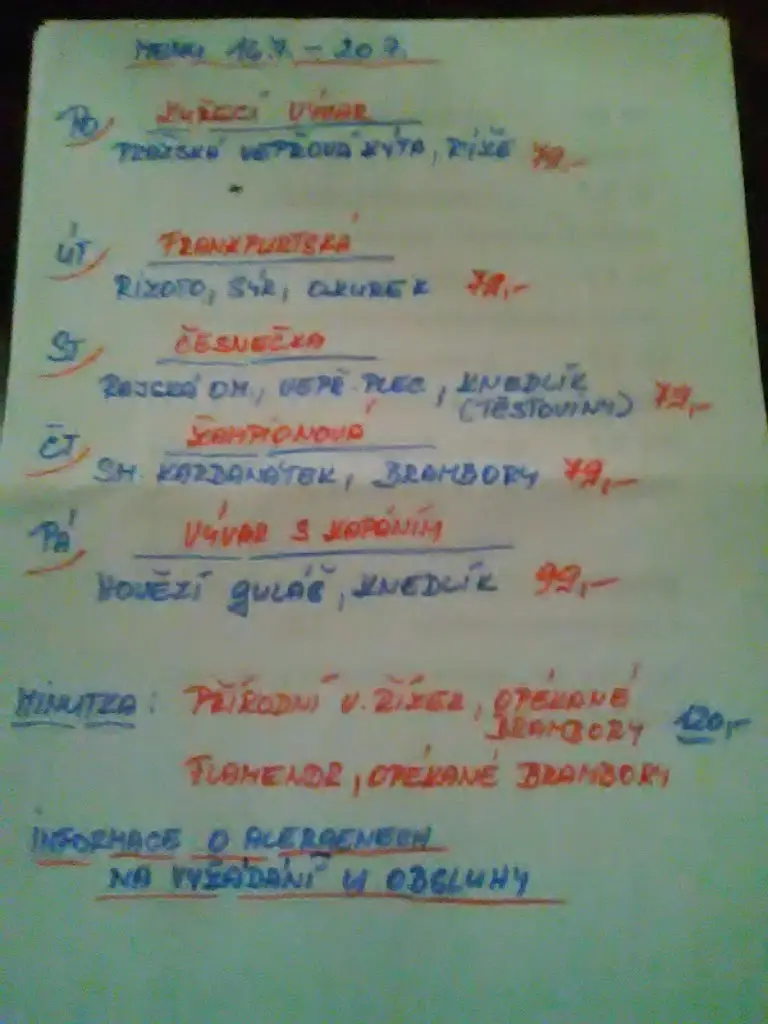 MENU 16.7. - 20.7.
PO KUŘECÍ VÝVAR
PRAŽSKÁ VEPŘOVÁ KÝTA, RÝŽE 79,-
ÚT FRANKFURTSKÁ
RIZOTO, SÝR, OKUREK 79,-
ST ČESNEČKA
RAJSKÁ OM., VEPŘ. PLEC, KNEDLÍK
(TĚSTOVINY) 79,-
ČT ŽAMPIONOVÁ
SM. KARBANÁTEK, BRAMBORY 79,-
PÁ VÝVAR S KAPÁNÍM
HOVĚZÍ GULÁŠ, KNEDLÍK 99,-
MINUTKA: PŘÍRODNÍ V. ŘÍZEK, OPÉKANÉ
BRAMBORY 120,-
FLAMENDR, OPÉKANÉ BRAMBORY
INFORMACE O ALERGENECH
NA VYŽÁDÁNÍ U OBSLUHY